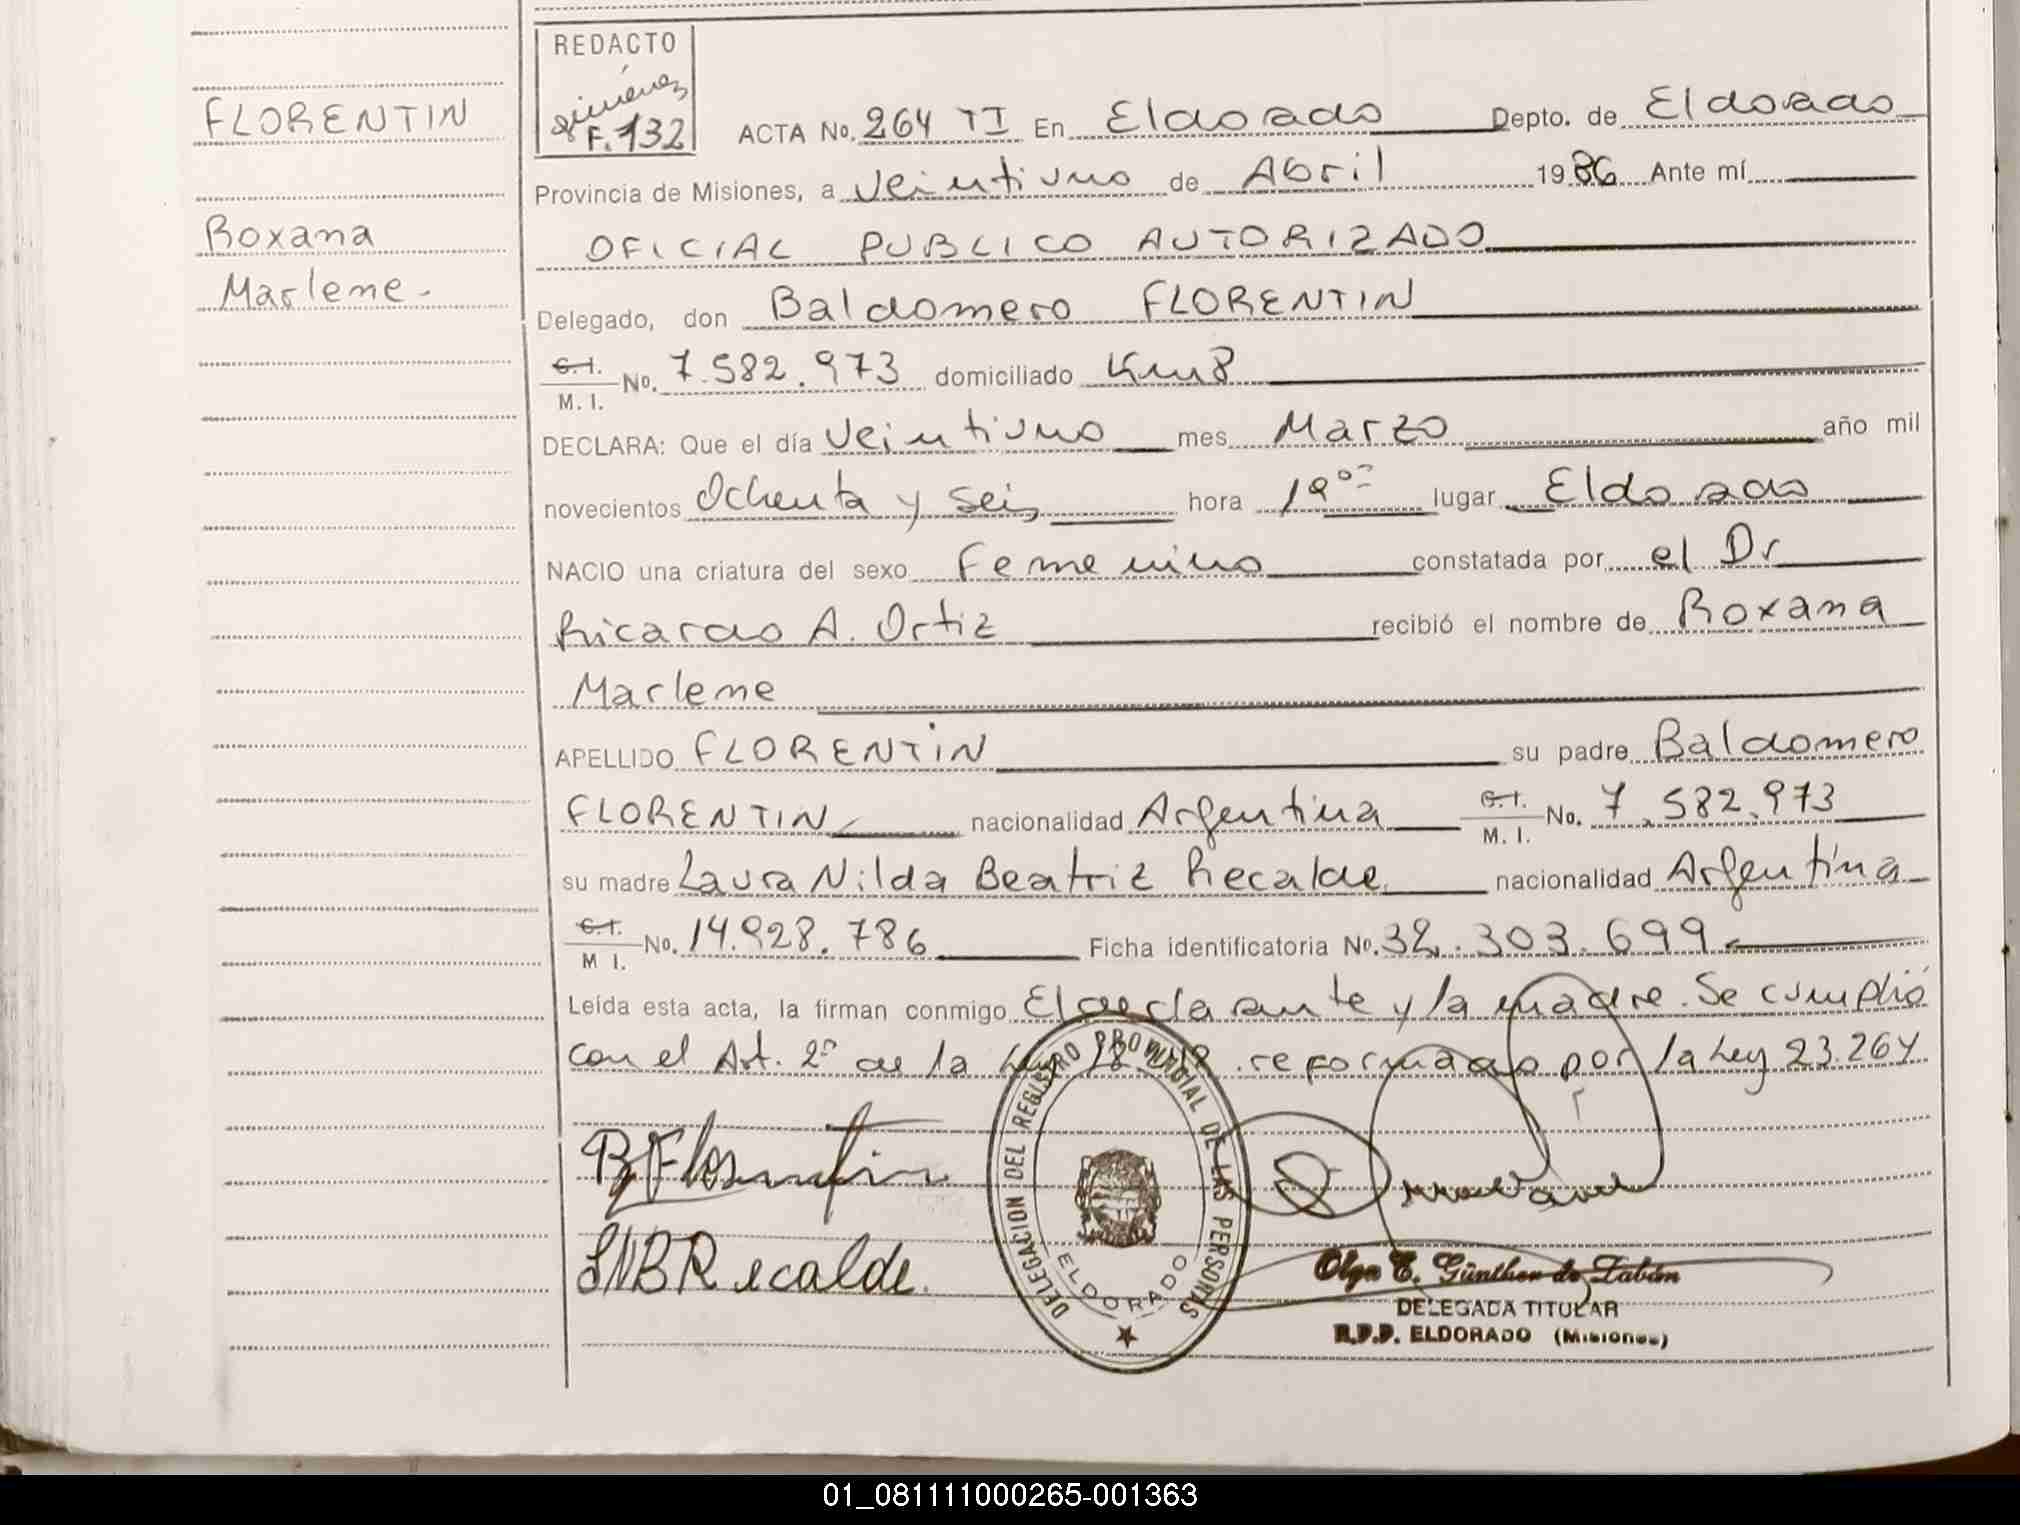 FLORENTIN
Roxana
Marlene.
REDACTO
Giménez
F.132
ACTA No. 264 TI En Eldorado Depto. de Eldorado
Provincia de Misiones, a veintiuno de Abril 1986 Ante mí
OFICIAL PUBLICO AUTORIZADO
Delegado, don Baldomero FLORENTIN
C.I. M.I. No. 7.582.973 domiciliado Km8
DECLARA: Que el día veintiuno mes Marzo año mil
novecientos Ochenta y seis hora 19 lugar Eldorado
NACIO una criatura del sexo Femenino constatada por el Dr
Ricardo A. Ortiz recibió el nombre de Roxana
Marlene
APELLIDO FLORENTIN su padre Baldomero
FLORENTIN nacionalidad Argentina C.I. M.I. No. 7.582.973
su madre Laura Nilda Beatriz Recalde nacionalidad Argentina
C.I. M I. No. 14.928.786 Ficha identificatoria No. 32.303.699
Leída esta acta, la firman conmigo El declarante y la madre. Se cumplió
con el Art. 2º de la Ley reformado por la Ley 23.264
B Florentin
LNBRecalde.
DELEGACION DEL REGISTRO PROVINCIAL DE LAS PERSONAS
ELDORADO
Olga E. Günther de Zabán
DELEGADA TITULAR
R.P.P. ELDORADO (Misiones)
01_081111000265-001363